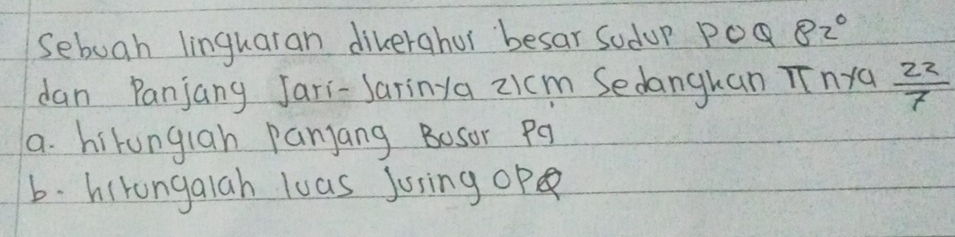 Sebuah lingkaran diketahui besar sudut POQ 82°
dan Panjang Jari-Jarinya 21cm Sedangkan π nya 22/7
a. hitunglah Panjang Busur PQ
b. hitungalah luas Juring OPQ